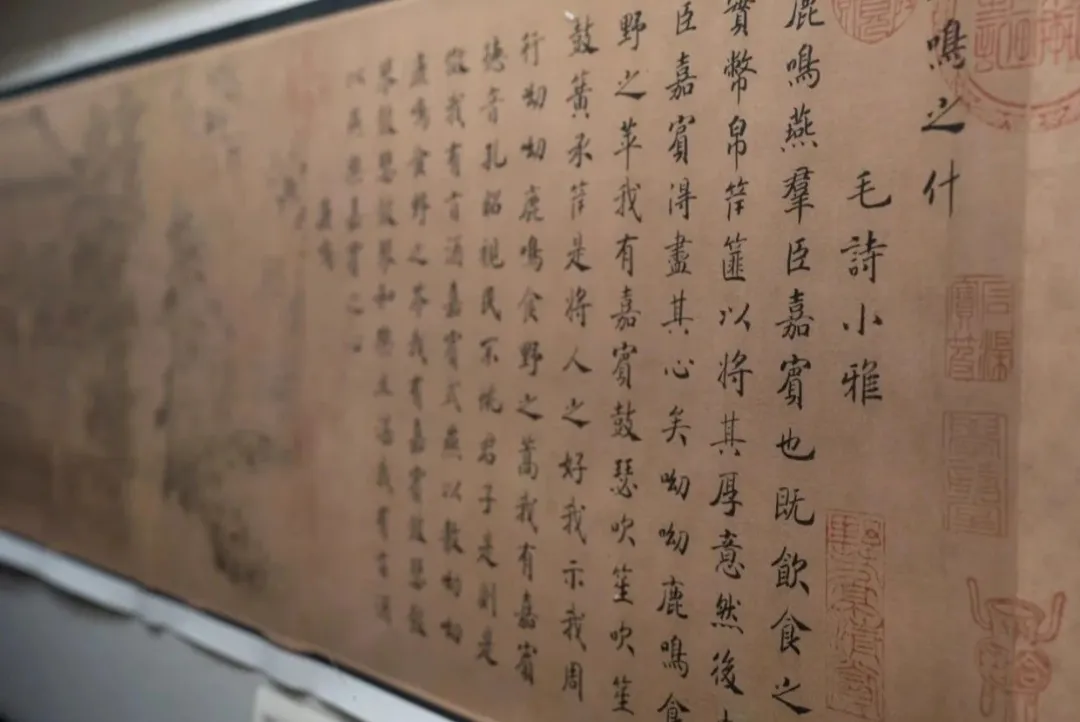 鳴之什
毛詩小雅
鹿鳴燕羣臣嘉賓也既飲食之
實幣帛筐篚以將其厚意然後
臣嘉賓得盡其心矣呦呦鹿鳴食
野之苹我有嘉賓鼓瑟吹笙吹笙
鼓簧承筐是將人之好我示我周
行呦呦鹿鳴食野之蒿我有嘉賓
德音孔昭視民不恌君子是則是
傚我有旨酒嘉賓式燕以敖呦呦
鹿鳴食野之芩我有嘉賓鼓瑟鼓
琴鼓瑟鼓琴和樂且湛我有旨酒
以燕樂嘉賓之心
鹿鳴